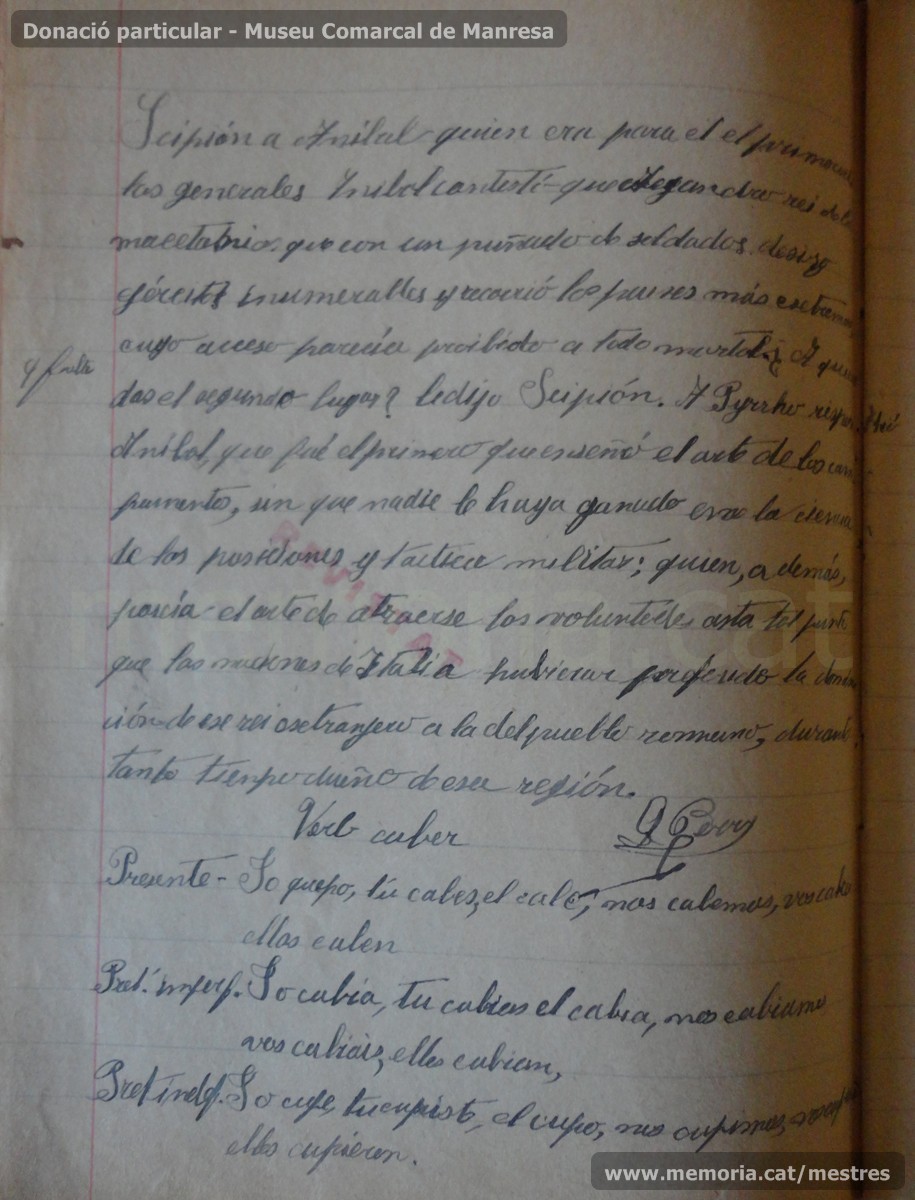 Donació particular - Museu Comarcal de Manresa
Scipión a Anibal quien era para el el primero
los generales Anibal contestó que Alegandro rei de la
macetabnia que con un puñado de soldados desizo
egércitos inumerables y recorrió los paises más esetramos
cuyo acceso parecia proibido a todo mortal A quien
4 falta
das el segundo lugar? le dijo Scipión. A Pyrrho respon
Anibal, que fué el primero que enseñó el arte de los cam
pamentos, sin que nadie le haya ganado en la ciencia
de las posiciones y tactica militar; quien, a demás,
poseia el arte de atraerse las voluntades asta tal punto
que las naciones de Italia hubieran preferido la domina
ción de ese rei esetranjero a la del pueblo romano, durante
tanto tienpo dueño de esa región.
Verb caber
Presente - Yo quepo, tu cabes, el cabe, nos cabemos, vos cabe
ellos caben
Pret. imperf. Yo cabia, tu cabias el cabia, nos cabiamo
vos cabiais, ellos cabian,
Pret indef. Yo cupe, tu cupiste, el cupo, nos cupimos,
ellos cupieron.
www.memoria.cat/mestres